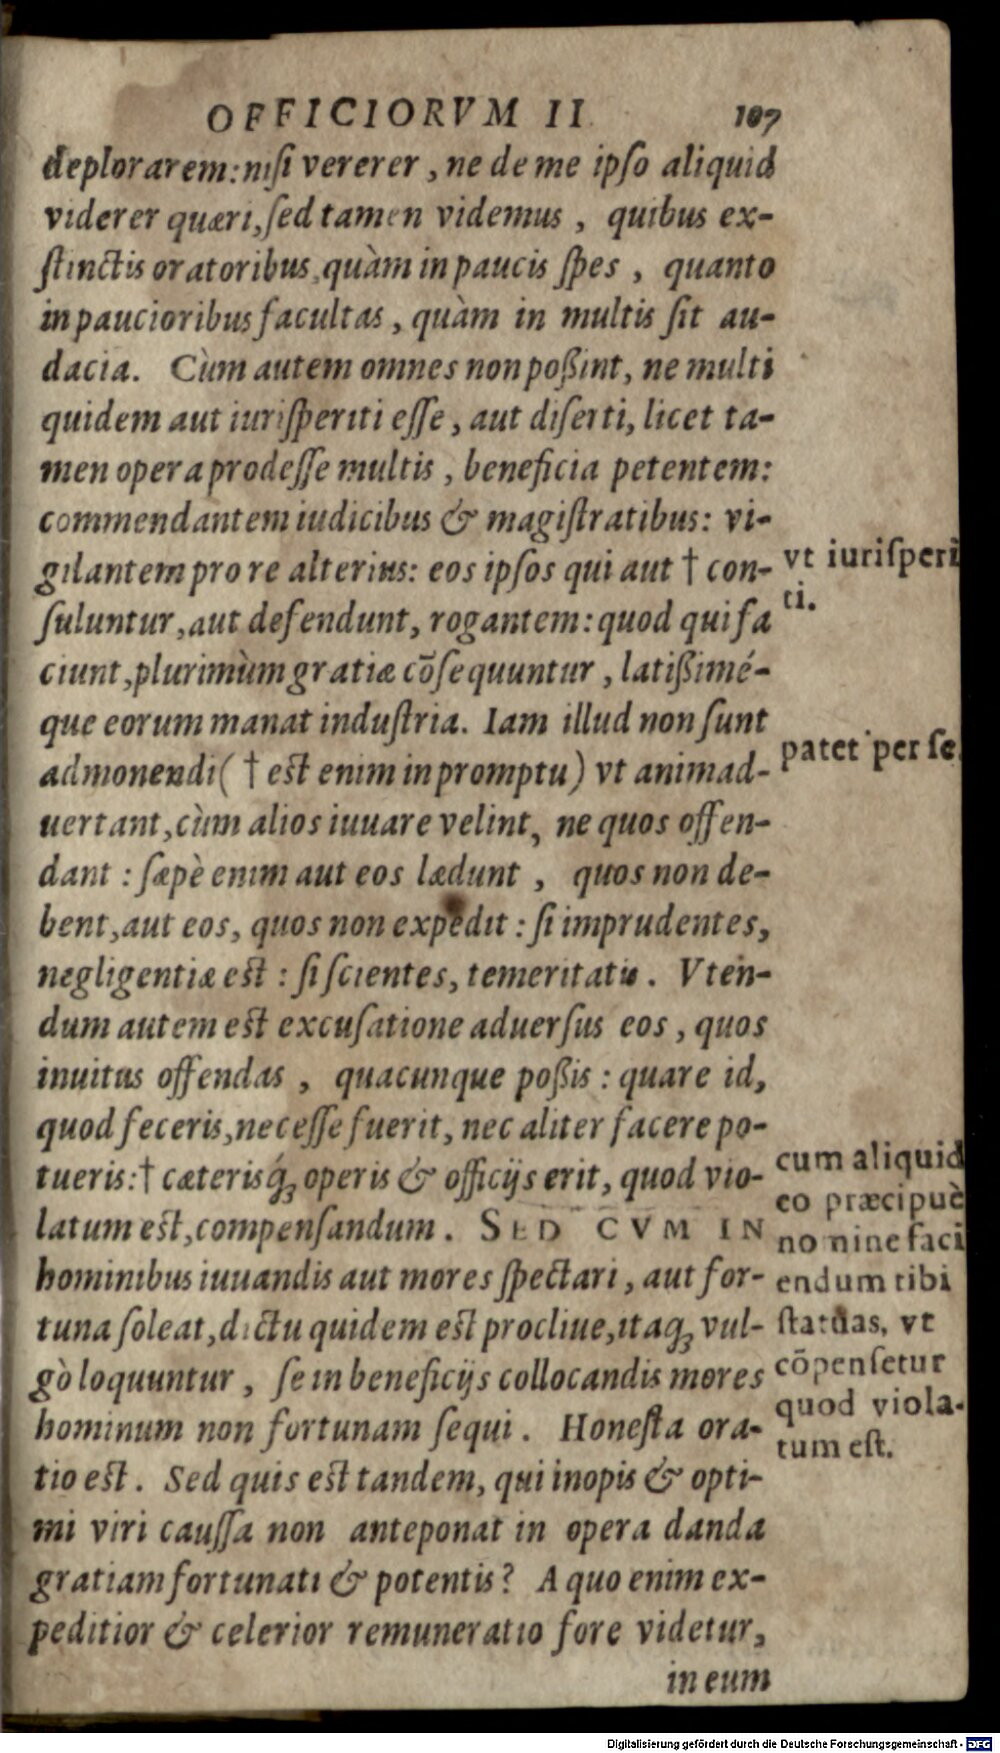 OFFICIORVM II 107
deplorarem: nisi vererer, ne de me ipso aliquid
viderer quæri, sed tamen videmus, quibus ex-
stinctis oratoribus, quàm in paucis spes, quanto
in paucioribus facultas, quàm in multis sit au-
dacia. Cùm autem omnes non poßint, ne multi
quidem aut iurisperiti esse, aut diserti, licet ta-
men opera prodesse multis, beneficia petentem:
commendantem iudicibus & magistratibus: vi-
gilantem pro re alterius: eos ipsos qui aut † con-
suluntur, aut defendunt, rogantem: quod qui fa
ciunt, plurimùm gratiæ cōsequuntur, latißimé-
que eorum manat industria. Iam illud non sunt
admonendi († est enim in promptu) vt animad-
uertant, cùm alios iuuare velint, ne quos offen-
dant: sæpè enim aut eos lædunt, quos non de-
bent, aut eos, quos non expedit: si imprudentes,
negligentiæ est: si scientes, temeritatis. Vten-
dum autem est excusatione aduersus eos, quos
inuitus offendas, quacunque poßis: quare id,
quod feceris, necesse fuerit, nec aliter facere po-
tueris: † cæterisq́ꝫ operis & officijs erit, quod vio-
latum est, compensandum. SED CVM IN
hominibus iuuandis aut mores spectari, aut for-
tuna soleat, dictu quidem est procliue, itaqꝫ vul-
gò loquuntur, se in beneficijs collocandis mores
hominum non fortunam sequi. Honesta ora-
tio est. Sed quis est tandem, qui inopis & opti-
mi viri caussa non anteponat in opera danda
gratiam fortunati & potentis? A quo enim ex-
peditior & celerior remuneratio fore videtur,
in eum
vt iurisperi
ti.
patet per se.
cum aliquid
eo præcipuè
nomine faci
endum tibi
statuas, vt
cōpensetur
quod viola-
tum est.
Digitalisierung gefördert durch die Deutsche Forschungsgemeinschaft - DFG